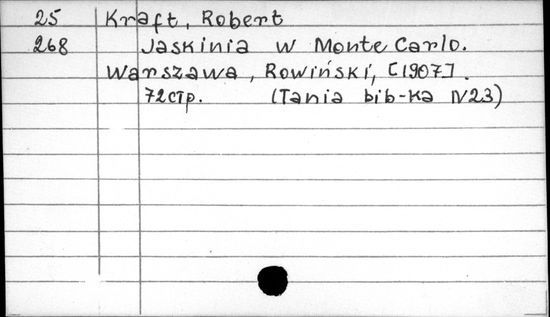 25 Kraft, Robert
268 Jaskinia w Monte Carlo.
Warszawa, Rowiński, [1907].
72 стр. (Tania bib-ka N23)